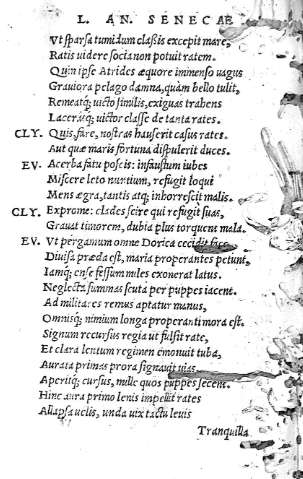 L. AN. SENECAE
Vt sparsa tumidum classis excepit mare,
Ratis videre socia non potuit ratem.
Quin ipse Atrides æquore immenso uagus
Grauiora pelago damna, quàm bello tulit,
Remeatq; uicto similis, exiguas trahens
Lacerasq; uictor classe de tanta rates.
CLY. Quis, fare, nostras hauserit casus rates.
Aut quæ maris fortuna dispulerit duces.
EV. Acerba fatu poscis: infaustum iubes
Miscere leto nuntium, refugit loqui
Mens ægra, tantis atq; inhorrescit malis.
CLY. Exprome: clades scire qui refugit suas,
Grauat timorem, dubia plus torquent mala.
EV. Vt pergamum omne Dorica cecidit face,
Diuisa præda est, maria properantes petunt,
Iamq; ense fessum miles exonerat latus.
Neglecta summas scuta per puppes iacent.
Ad militares remus aptatur manus,
Omnisq; nimium longa properanti mora est.
Signum recursus regia ut fulsit rate,
Et clara lentum regimen emonuit tuba,
Aurata primas prora signauit uias,
Aperitq; cursus, mille quos puppes secent.
Hinc aura primo lenis impellit rates
Allapsa uelis, unda uix tactu leuis
Tranquilla